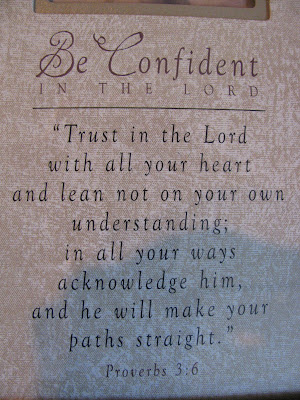 Be Confident
IN THE LORD
“Trust in the Lord
with all your heart
and lean not on your own
understanding;
in all your ways
acknowledge him,
and he will make your
paths straight.”
Proverbs 3:6